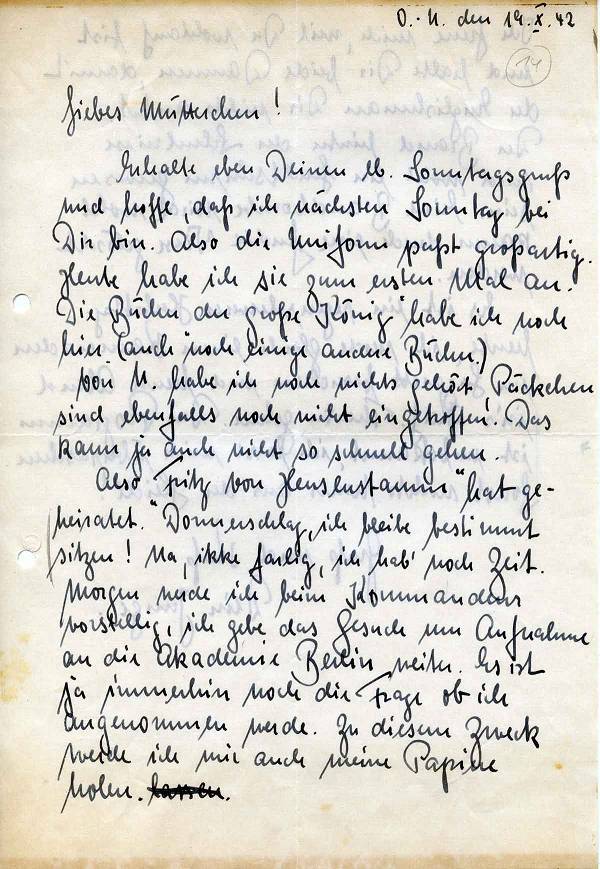 O.-U. den 19.X.42
14
Liebes Mütterchen!
Erhalte eben Deinen lb. Sonntagsgruß
und hoffe, daß ich nächsten Sonntag bei
Dir bin. Also die Uniform paßt großartig.
Heute habe ich sie zum ersten Mal an.
Die Bücher der große König" habe ich noch
hier (auch noch einige andere Bücher)
Von U. habe ich noch nichts gehört, Päckchen
sind ebenfalls noch nicht eingetroffen. Das
kann ja auch nicht so schnell gehen.
Also „Fritz von Heusenstamm" hat ge-
heiratet. "Donnerschlag, ich bleibe bestimmt
sitzen! Na, ikke farlig, ich hab' noch Zeit.
Morgen werde ich beim Kommandeur
vorstellig, ich gebe das Gesuch um Aufnahme
an die Akademie Berlin weiter. Es ist
ja immerhin noch die Frage ob ich
angenommen werde. Zu diesem Zweck
werde ich mir auch meine Papiere
holen. lassen.